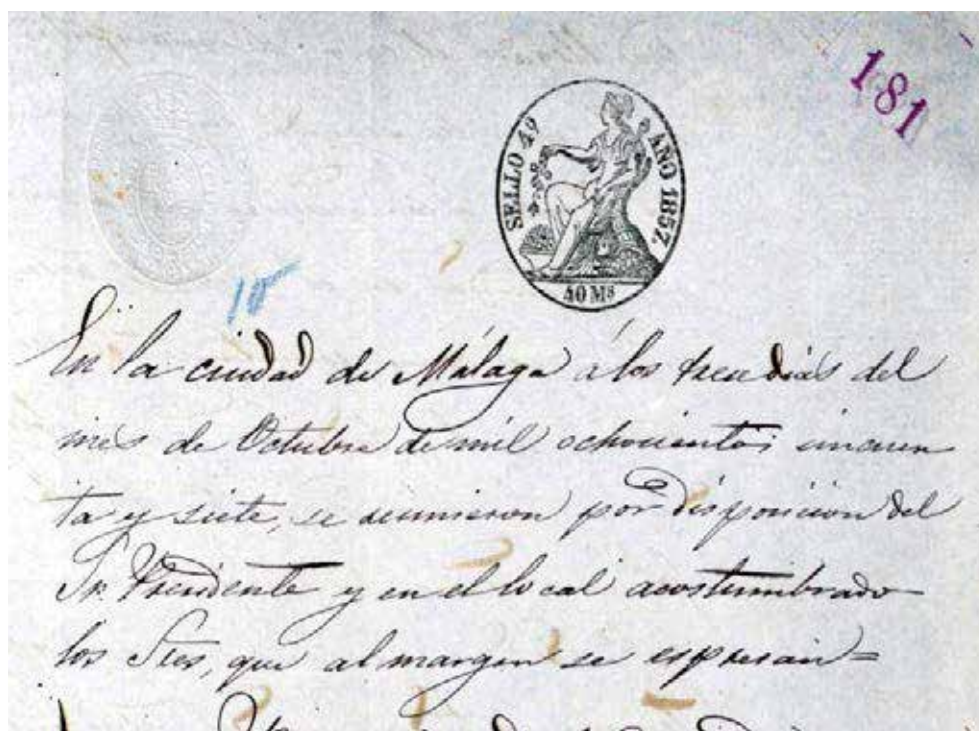 181
SELLO 4º AÑO 1857.
40 Ms
10
En la ciudad de Málaga á los tres dias del
mes de Octubre de mil ochocientos cincuen
ta y siete, se reunieron por disposicion del
Sr. Presidente y en el local acostumbrado
los Sres, que al margen se espresan=